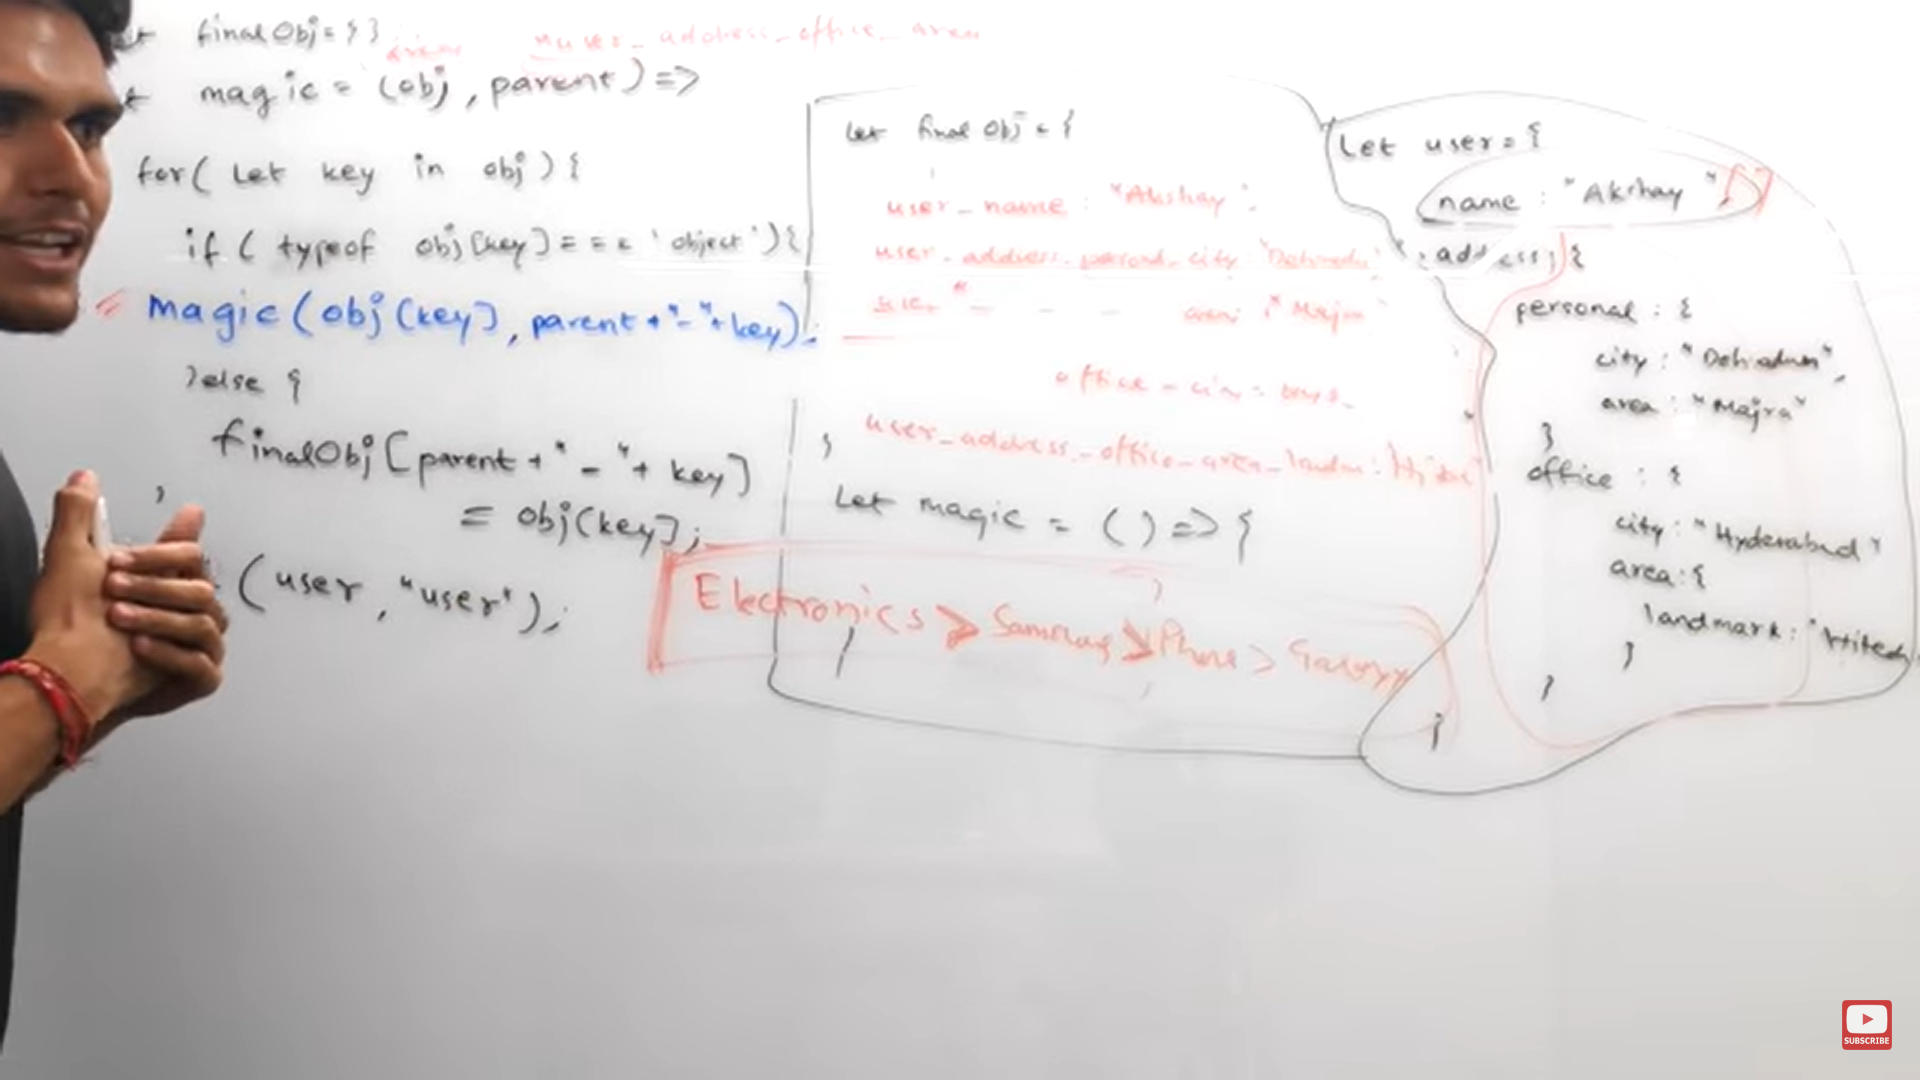 finalObj = { }
user_address_office_area
magic = (obj, parent) =>
for( Let key in obj ) {
if ( typeof obj[key] === 'object' ) {
magic ( obj [key], parent + "_" + key);
} else {
finalObj [ parent + "_" + key ]
= obj[key];
(user, "user");
Let final Obj = {
user_name : "Akshay",
user_address_personal_city
area: "Majra
office
user_address_office_area_landm:
}
Let magic = ( ) => {
Electronics > Samsung > Phone > Galaxy
}
Let user = {
name : "Akshay",
address: {
personal : {
city : "Dehradun",
area : "Majra"
}
office : {
city : "Hyderabad"
area : {
landmark : "Hitech
}
}
}
SUBSCRIBE